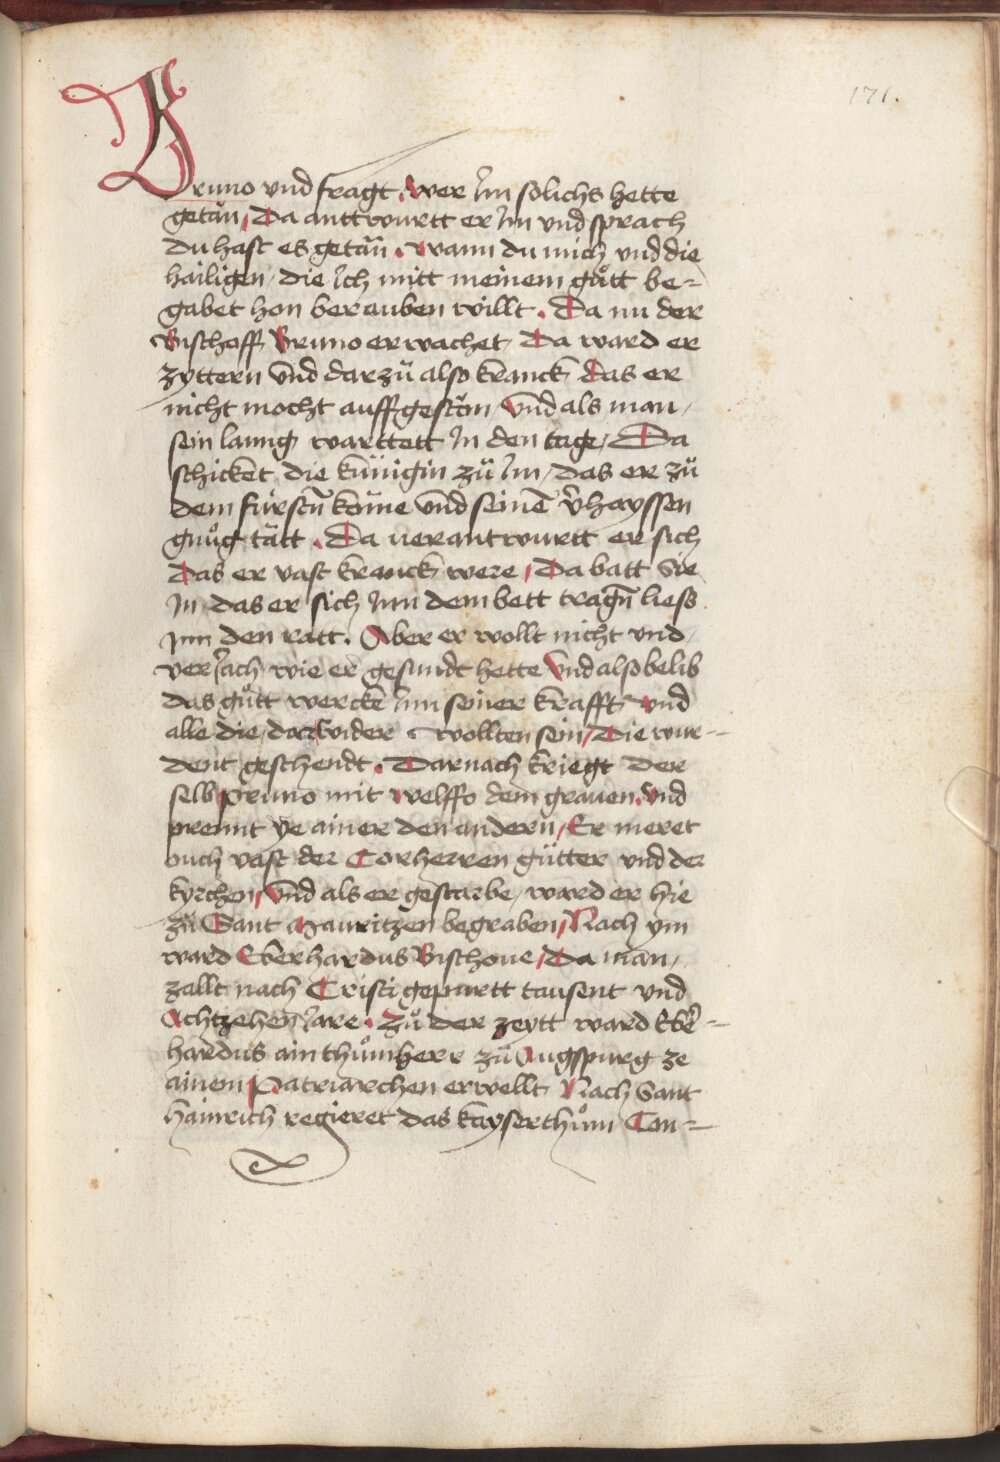 171.
Bruno vnd fragt, wer Im solichs hette
getän, Da anttwurtt er Im vnd sprach
Du hast es getän. wann du mich vnd die
hailigen, die Ich mitt meinem gůtt be-
gabet hon berauben willt. Da nu der
Bischoff Bruno erwachet, Da ward er
zyttern vnd darzů also kranck das er
nicht mocht auffgestän, vnd als man,
sein lanng warttett In den tage, Da
schicket die künigin zů Im, das er zů
dem fürstn̄ kom̄e vnd seinē v̄hayssen
gnůg tätt. Da uerantwurtt er sich
Das er vast kranck were, Da batt Sie
In, das er sich Inn dem bett tragn̄ liess
Inn den ratt. Aber er wollt nicht vnd,
veriach wie er gesundt hette vnd also belib
das gůtt wercke Inn seiner krafft vnd
alle die, darwider wollten sein, Die wur-
dent geschendt. Darnach kriegt der
selb pruno mit welffo dem grauen. vnd
prennt ye ainer den andern, Er meret
ouch vast der Corherren gütter vnd der
kyrchen, vnd als er gestarbe, ward er hie
zů Sant Mauritzen begraben, Nach ym
ward Eberhardus Bischoue, Da man,
zallt nach Cristi gepurtt tausent vnd
Achtzehen Iare. Zů der zeytt ward Ebē-
hardus ain thůmherr zů Augspurg ze
ainem Patriarchen erwellt Nach Sant
hainrich regieret das kayserthům Con-